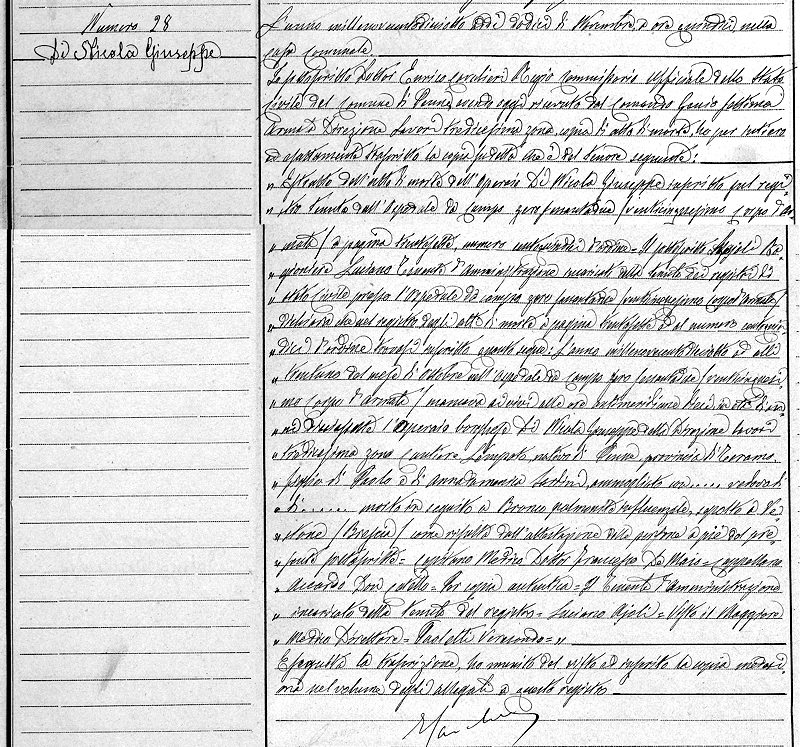 Numero 28
Di Nicola Giuseppe
L'anno millenovecentodiciotto addì dodici di Novembre a ore quindici nella
casa comunale
Io sottoscritto Dottor Enrico Cavalieri Regio Commissario Ufficiale dello Stato
Civile del Comune di Penna, avendo oggi ricevuto dal Comando Genio settima
Armata Direzione Lavori tredicesima zona, copia di atto di morte, ho per intiero
ed esattamente trascritto la copia suddetta che è del tenore seguente:
" Estratto dell'atto di morte dell'Operaio Di Nicola Giuseppe inscritto sul regi-
" stro tenuto dall'Ospedale da campo zero (venticinquesimo Corpo d'Ar-
" mata) a pagina trentasette, numero d'ordine = Il sottoscritto Ajoli Ra-
" gioniere Luciano Tenente d'Amministrazione incaricato della tenuta dei registri di
" stato civile presso l'Ospedale da campo zero (venticinquesimo Corpo d'Armata)
" dichiara che nel registro degli atti di morte a pagina trentasette ed al numero
" dici d'ordine trovasi inscritto quanto segue: L'anno millenovecentodiciotto ed alli
" trentuno del mese di Ottobre nell'Ospedale da campo zero (venticinquesi-
" mo Corpo d'Armata) mancava ai vivi alle ore antimeridiane dieci in età di an-
" ni l'Operaio borghese Di Nicola Giuseppe della Direzione lavori
" tredicesima zona cantiere nativo di Penna provincia di Teramo
" figlio di Paolo e di Annadomenica ammogliato con ...... vedovo di
" di ....... morto in seguito a Bronco polmonite influenzale, sepolto a Ve-
" stone (Brescia) come risulta dall'attestazione delle persone a piè del pre-
" sente sottoscritte = Capitano Medico Dottor Francesco De Maio = Cappellano
" Accardo Don Catello = Per copia autentica = Il Tenente d'Amministrazione
" incaricato della tenuta del registro = Luciano Ajoli = Visto il Maggiore
" Medico Direttore = Paoletti = "
Eseguita la trascrizione, ho munito del visto ed inserito la copia medesi-
ma nel volume degli allegati a questo registro